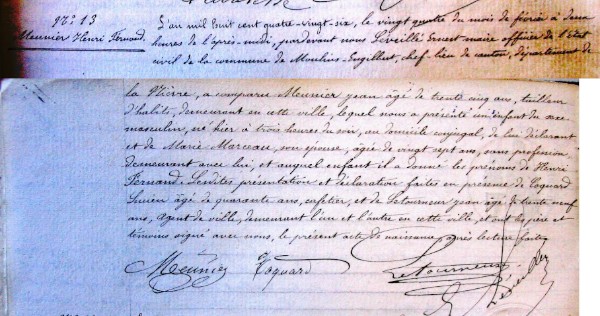 N° 13
Meunier Henri Fernand.
L'an mil huit cent quatre-vingt-six, le vingt quatre du mois de février à deux
heures de l'après-midi, pardevant nous Léveillé Ernest maire officier de l'état
civil de la commune de Moulins-Engilbert, chef-lieu de canton, département de
la Nièvre, a comparu Meunier Jean âgé de trente cinq ans, tailleur
d'habits, demeurant en cette ville, lequel nous a présenté un enfant du sexe
masculin, né hier à trois heures du soir, au domicile conjugal, de lui déclarant
et de Marie Marceau, son épouse, âgée de vingt sept ans, sans profession
demeurant avec lui; et auquel enfant il a donné les prénoms de Henri
Fernand. Lesdites présentation et déclaration faites en présence de Coquard
Lucien âgé de quarante ans, cafetier, et de Letourneur Jean âgé de trente neuf
ans, agent de ville, demeurant l'un et l'autre en cette ville, et ont les père et
témoins signé avec nous, le présent acte de naissance après lecture faite.
Meunier Coquard Letourneur